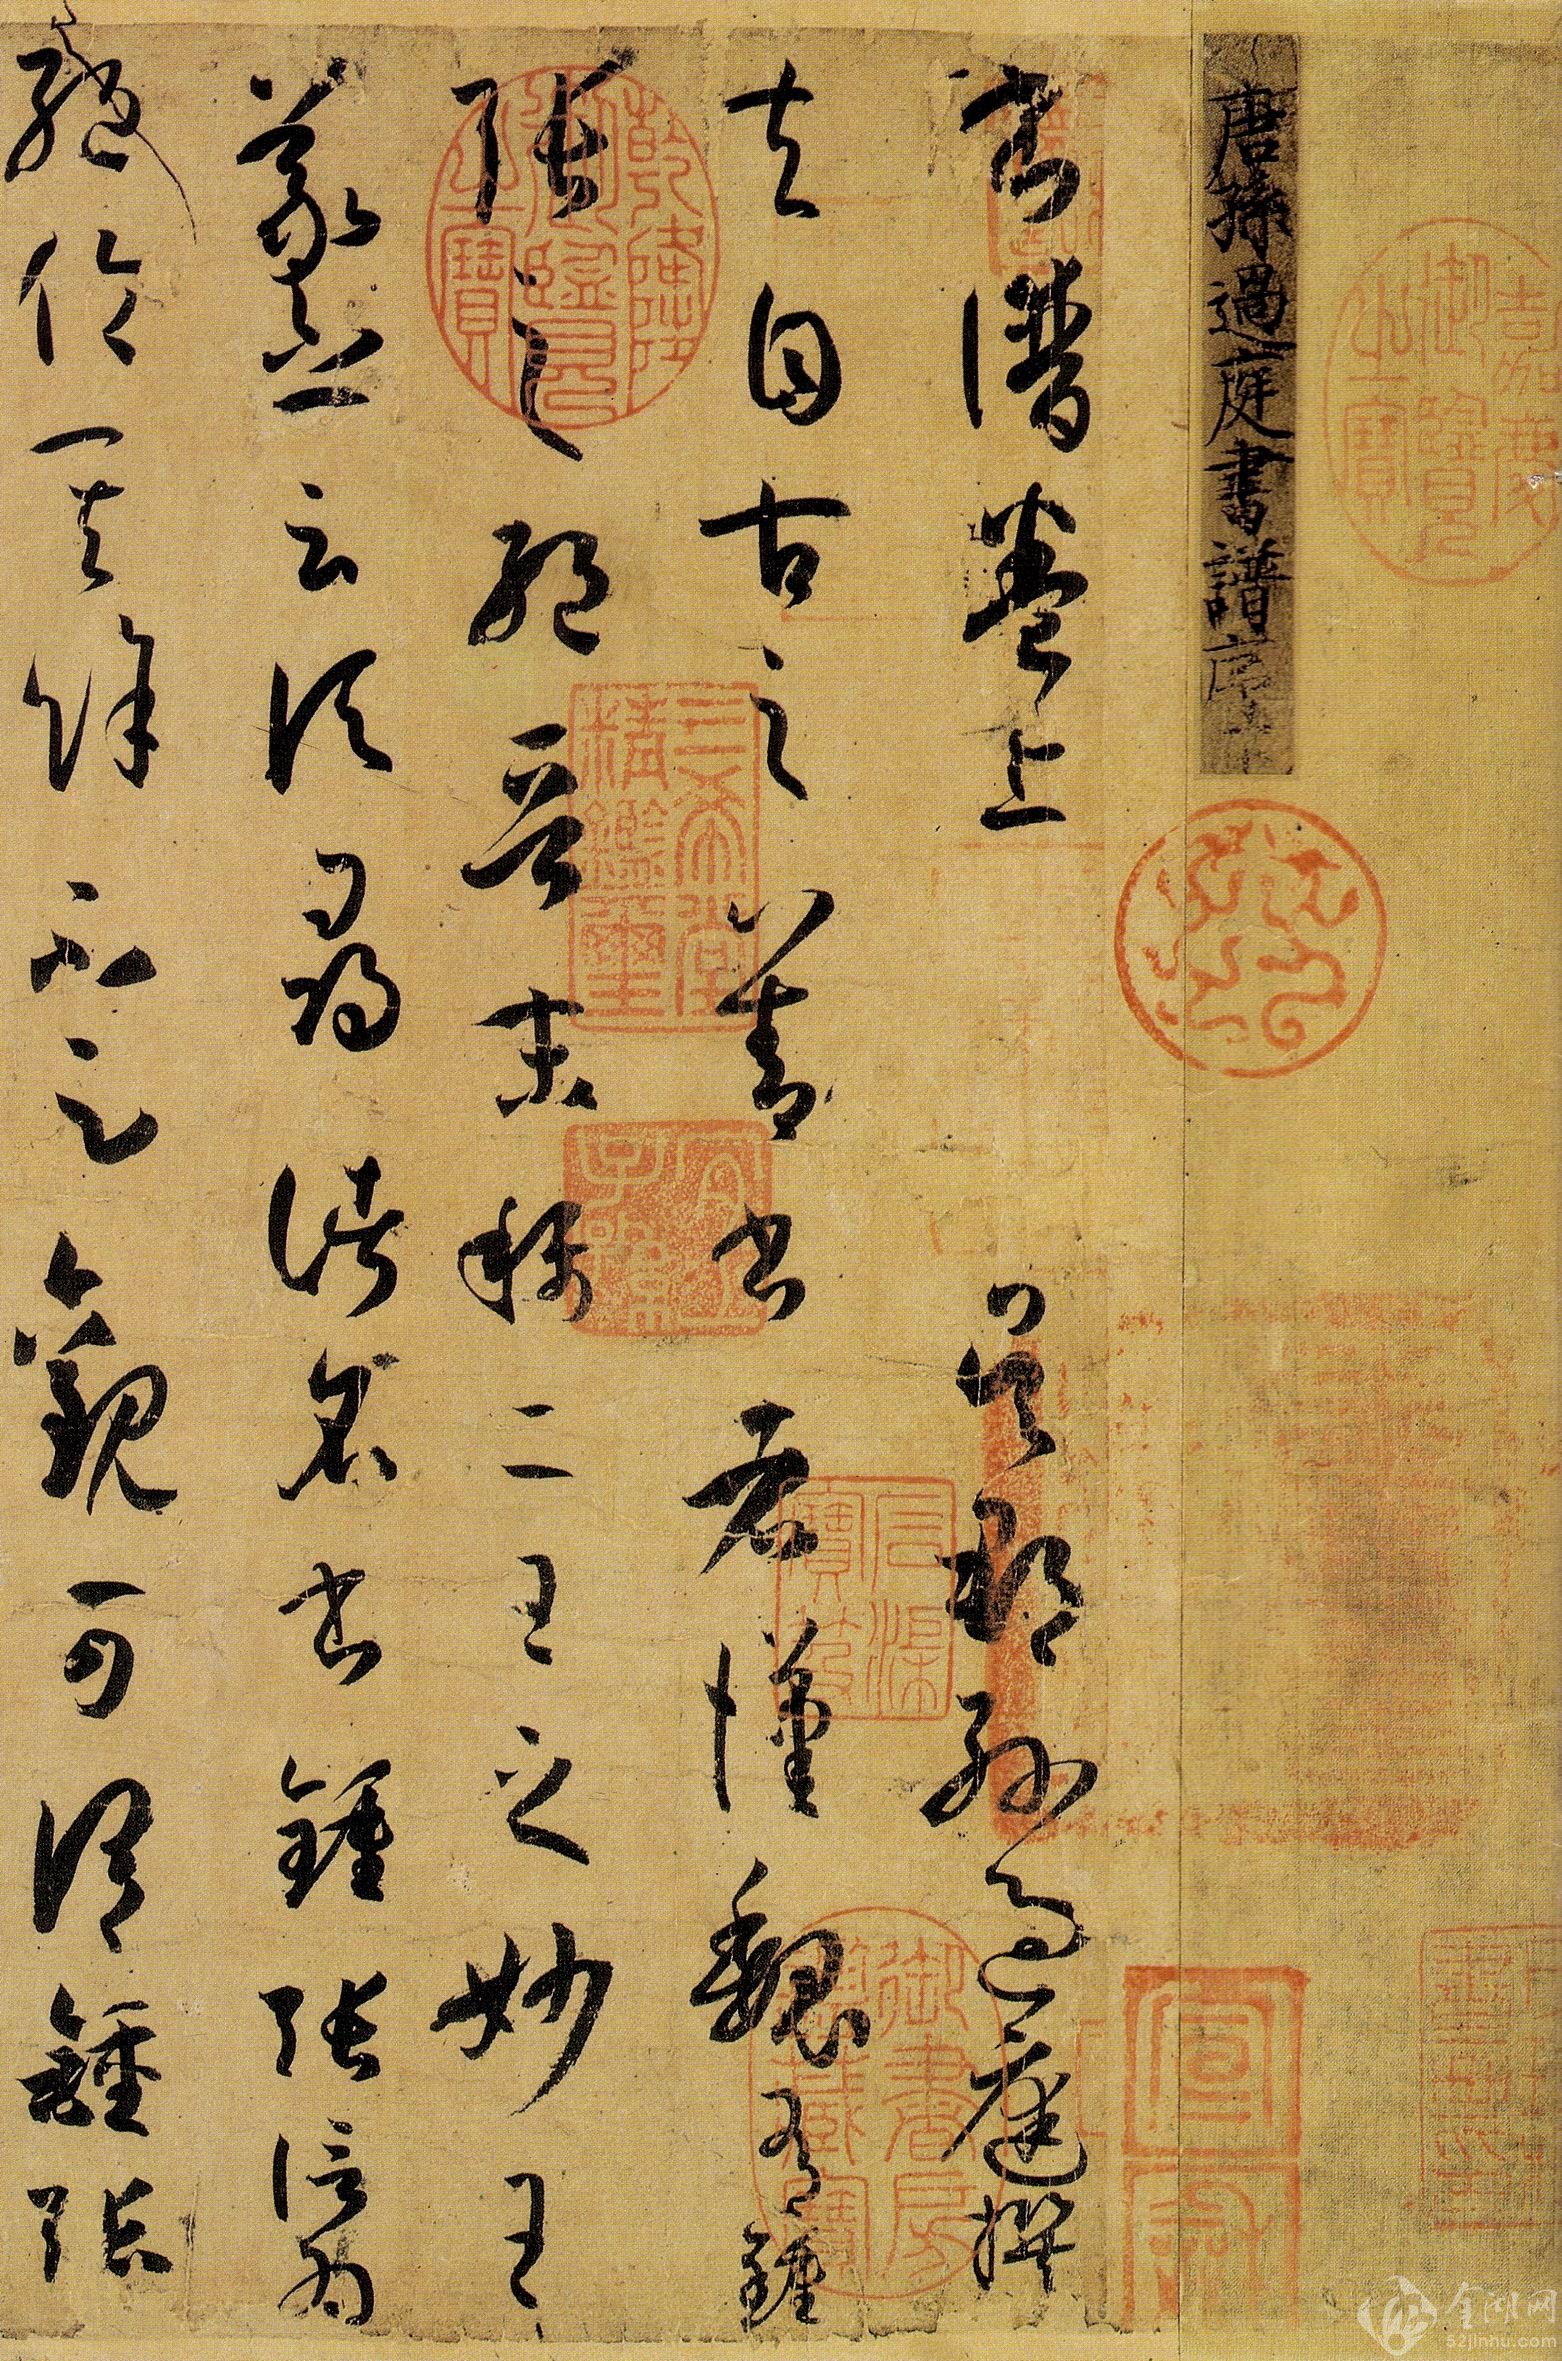 嘉慶御覽之寶
唐孫過庭書譜序
宣
和
書譜卷上 吳郡孫過庭撰
夫自古之善書者漢魏有鍾
張之絕晉末稱二王之妙王
羲之云頃尋諸名書鍾張信為
絕倫其餘不足觀可謂鍾張
乾隆御覽之寶
三希堂精鑑璽
宜子孫
石渠寶笈
御書房鑑藏寶
金湖网
52jinhu.com